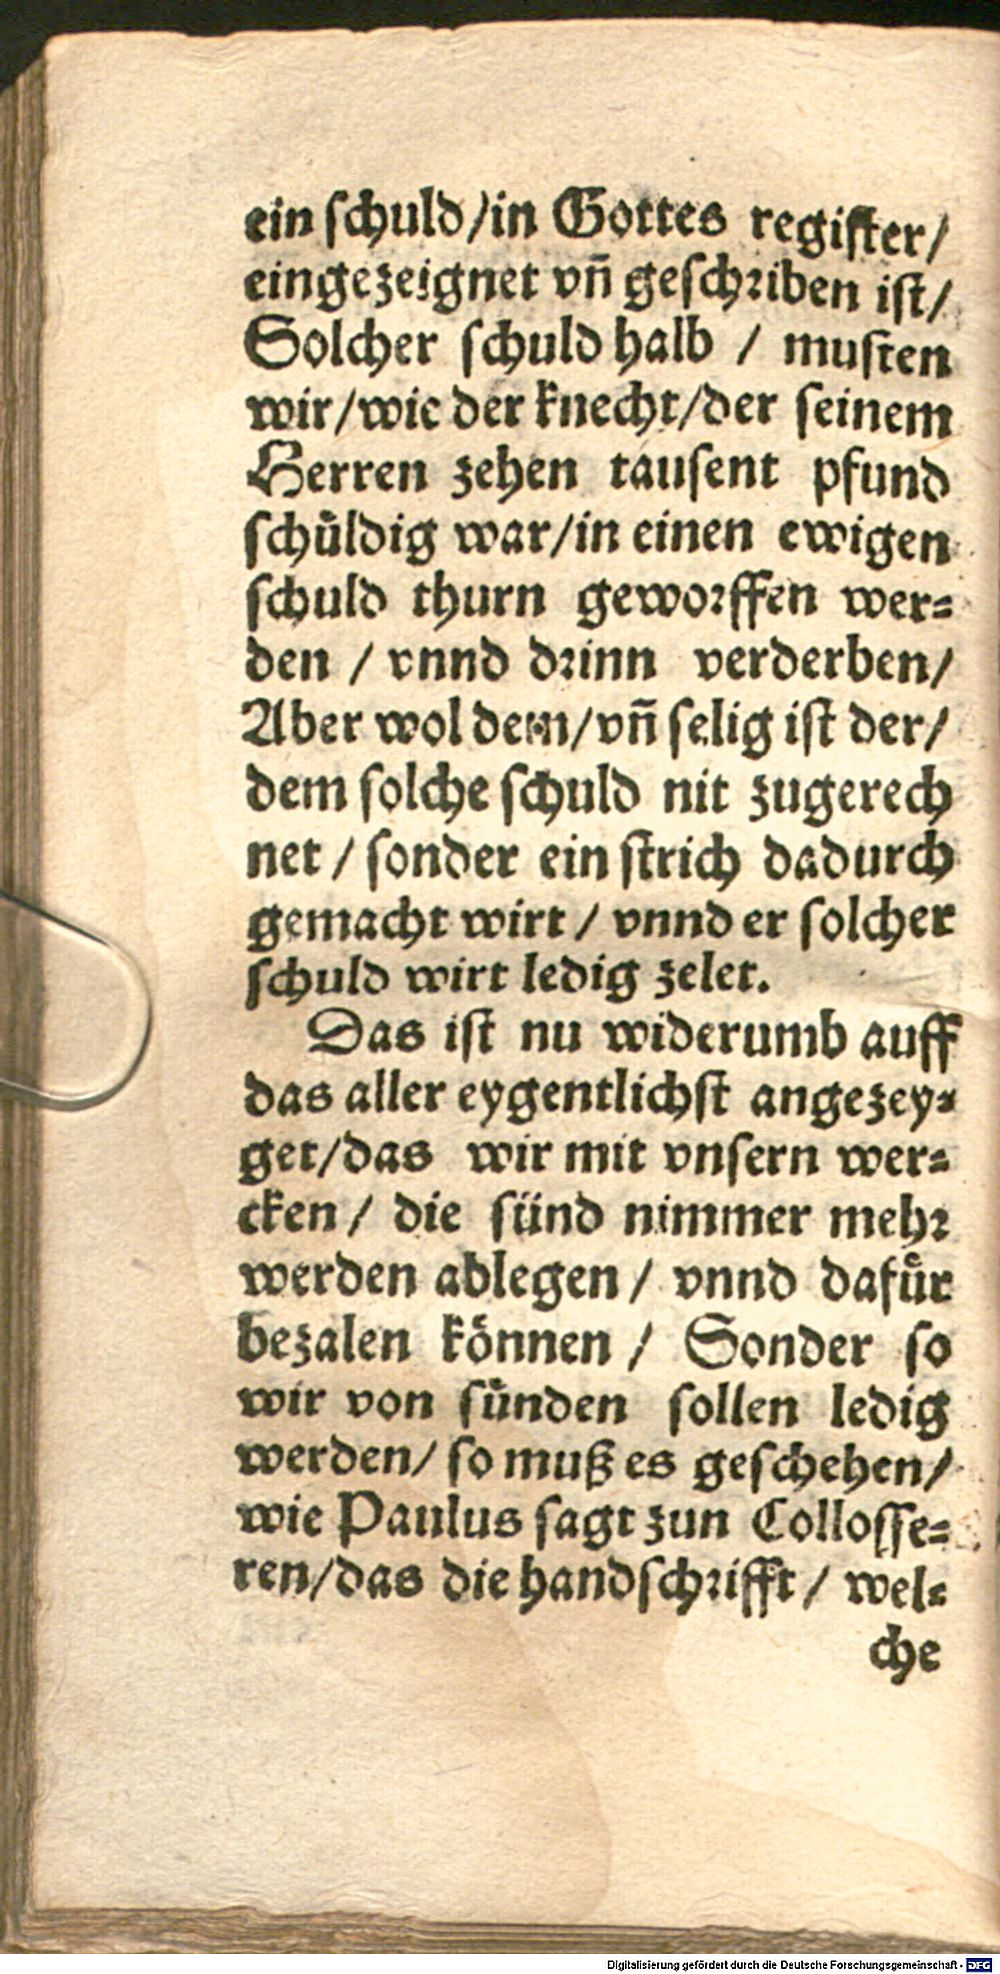 ein ſchuld/in Gottes regiſter/
eingezeignet vñ geſchꝛiben iſt/
Solcher ſchuld halb / muſten
wir/wie der knecht/der ſeinem
Herren zehen tauſent pfund
ſchuͤldig war/in einen ewigen
ſchuld thurn gewoꝛffen wer⸗
den / vnnd dꝛinn verderben/
Aber wol dem/vñ ſelig iſt der/
dem ſolche ſchuld nit zugerech
net / ſonder ein ſtrich dadurch
gemacht wirt / vnnd er ſolcher
ſchuld wirt ledig zelet.
Das iſt nu widerumb auff
das aller eygentlichſt angezey⸗
get/das wir mit vnſern wer⸗
cken / die ſünd nimmer mehꝛ
werden ablegen / vnnd dafuͤr
bezalen koͤnnen / Sonder ſo
wir von ſuͤnden ſollen ledig
werden/ ſo muß es geſchehen/
wie Paulus ſagt zun Colloſſe⸗
ren/das die handſchꝛifft / wel⸗
che
Digitalisierung gefördert durch die Deutsche Forschungsgemeinschaft - DFG